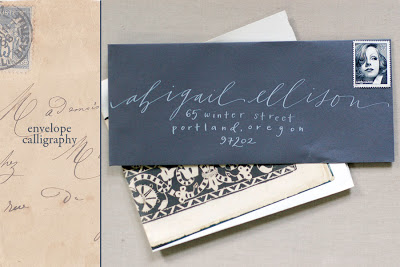 Madame
envelope
calligraphy
chez M
rue De
abigail ellison
65 winter street
portland, oregon
97202